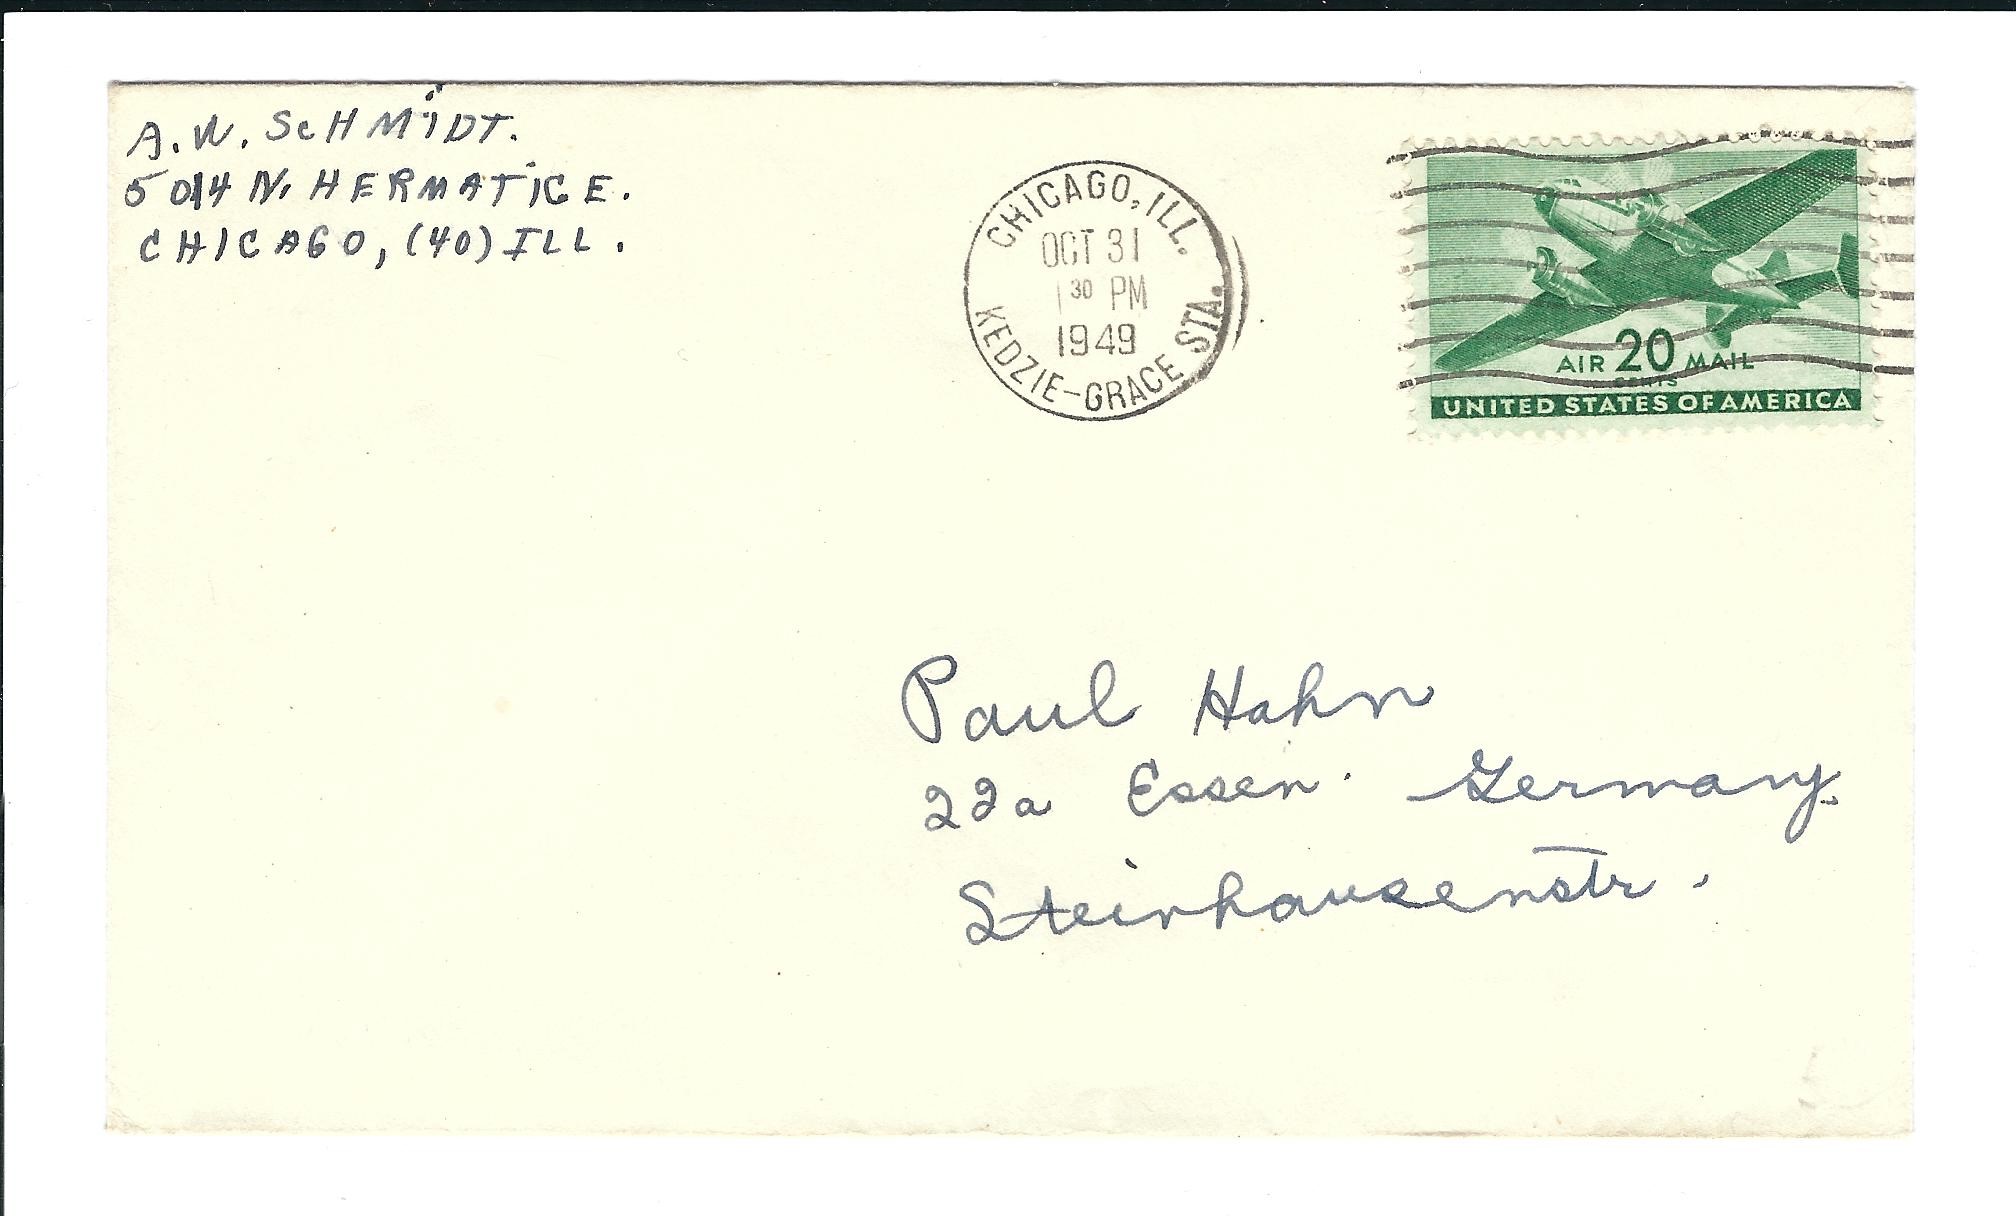 A.W. SCHMIDT.
5014 N. HERMATICE.
CHICAGO, (40) ILL.
CHICAGO, ILL.
OCT 31
1 30 PM
1949
KEDZIE-GRACE STA.
AIR 20 MAIL
CENTS
UNITED STATES OF AMERICA
Paul Hahn
22a Essen. Germany.
Steinhausenstr.